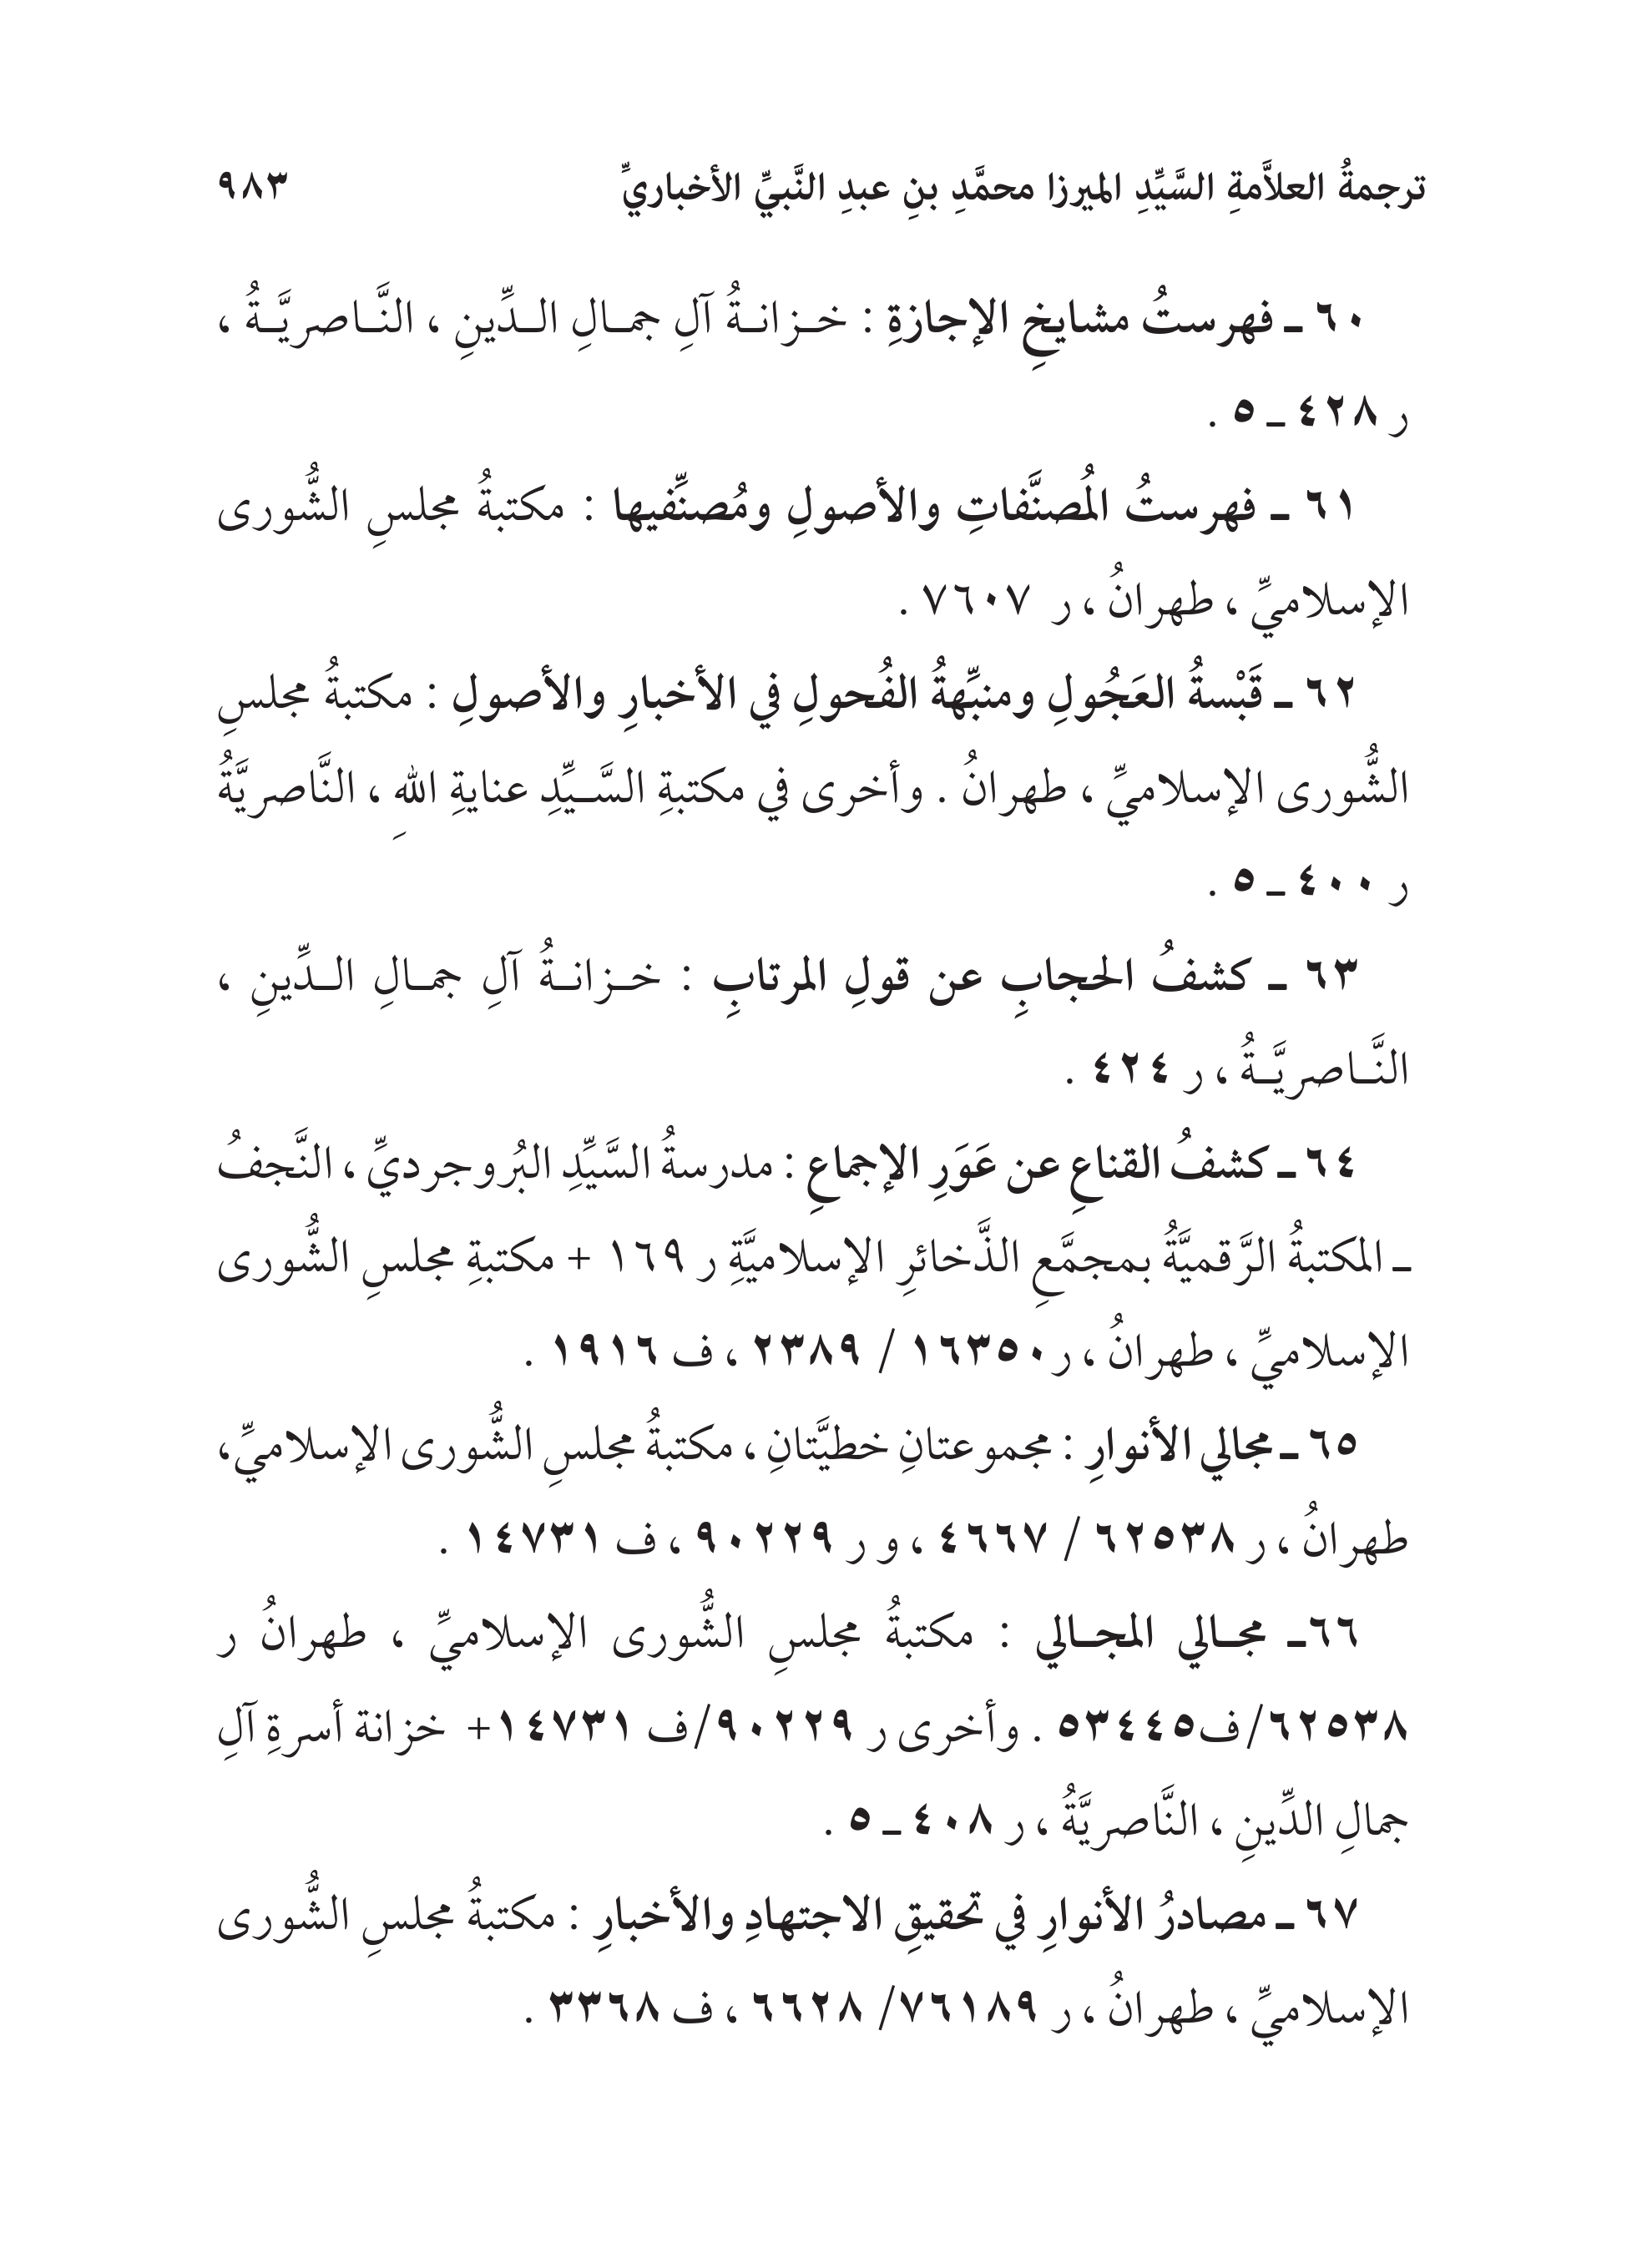 ترجمةُ العلاَّمةِ السَّيِّدِ الميرزا محمَّدِ بنِ عبدِ النَّبيِّ الأخباريِّ ٩٨٣
٦٠ ـ فهرستُ مشايخِ الإجازةِ : خـزانـةُ آلِ جمـالِ الـدِّينِ ، النَّـاصريَّـةُ ،
ر ٤٢٨ ـ ٥ .
٦١ ـ فهرستُ المُصنَّفاتِ والأصولِ ومُصنِّفيها : مكتبةُ مجلسِ الشُّورى
الإسلاميِّ ، طهرانُ ، ر ٧٦٠٧ .
٦٢ ـ قَبْسةُ العَجُولِ ومنبِّهةُ الفُحولِ في الأخبارِ والأصولِ : مكتبةُ مجلسِ
الشُّورى الإسلاميِّ ، طهرانُ . وأخرى في مكتبةِ السَّـيِّدِ عنايةِ اللهِ ، النَّاصريَّةُ
ر ٤٠٠ ـ ٥ .
٦٣ ـ كشفُ الحجابِ عن قولِ المرتابِ : خـزانـةُ آلِ جمـالِ الـدِّينِ ،
النَّـاصريَّـةُ ، ر ٤٢٤ .
٦٤ ـ كشفُ القناعِ عن عَوَرِ الإجماعِ : مدرسةُ السَّيِّدِ البُروجرديِّ ، النَّجفُ
ـ المكتبةُ الرَّقميَّةُ بمجمَّعِ الذَّخائرِ الإسلاميَّةِ ر ١٦٩ + مكتبةِ مجلسِ الشُّورى
الإسلاميِّ ، طهرانُ ، ر١٦٣٥٠ / ٢٣٨٩ ، ف ١٩١٦ .
٦٥ ـ مجالي الأنوارِ : مجموعتانِ خطيَّتانِ ، مكتبةُ مجلسِ الشُّورى الإسلاميِّ،
طهرانُ ، ر ٦٢٥٣٨ / ٤٦٦٧ ، و ر ٩٠٢٢٩ ، ف ١٤٧٣١ .
٦٦ـ مجـالي المجـالي : مكتبةُ مجلسِ الشُّورى الإسلاميِّ ، طهرانُ ر
٦٢٥٣٨/ف٥٣٤٤٥ . وأخرى ر ٩٠٢٢٩/ف ١٤٧٣١+ خزانة أسرةِ آلِ
جمالِ الدِّينِ ، النَّاصريَّةُ ، ر ٤٠٨ ـ ٥ .
٦٧ ـ مصادرُ الأنوارِ في تحقيقِ الاجتهادِ والأخبارِ : مكتبةُ مجلسِ الشُّورى
الإسلاميِّ ، طهرانُ ، ر ٧٦١٨٩/ ٦٦٢٨ ، ف ٣٣٦٨ .